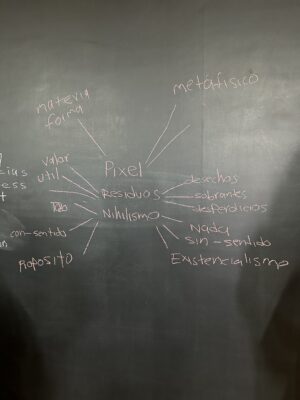 metafísico
materia
forma
Pixel
valor
útil
Residuos
desechos
sobrantes
desperdicios
Todo
Nihilismo
Nada
con-sentido
sin-sentido
Proposito
Existencialismo
ess